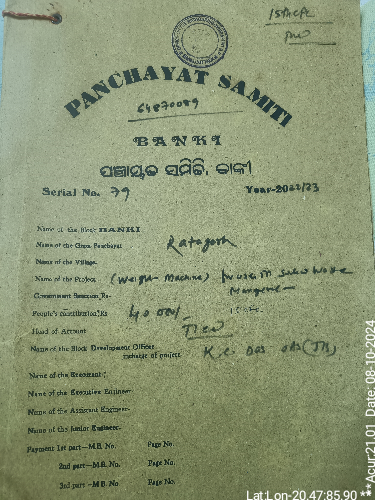 15th CFC
PANCHAYAT SAMITI
64870089
BANKI
ପଞ୍ଚାୟତ ସମିତି, ବାଙ୍କୀ
Serial No. 79 Year-2022/23
Name of the block BANKI
Name of the Gram Panchayat Ratagarh
Name of the Village.
Name of the Project (Weight Machine)
Government Sanction, Rs-
People's constribution, Rs 40,000/-
Head of Account Tied
Name of the Block Development Officer K.C. Das OAS (JB)
incharge of project.
Name of the Executant :
Name of the Executive Engineer-
Name of the Assistant Engineer-
Name of the Junior Engineer-
Payment 1st part—M.B. No. Page No.
2nd part—M.B. No. Page No.
3rd part—M.B. No. Page No.
Lat:Lon-20.47:85.90 ***Acur:21.01 Date: 08-10-2024